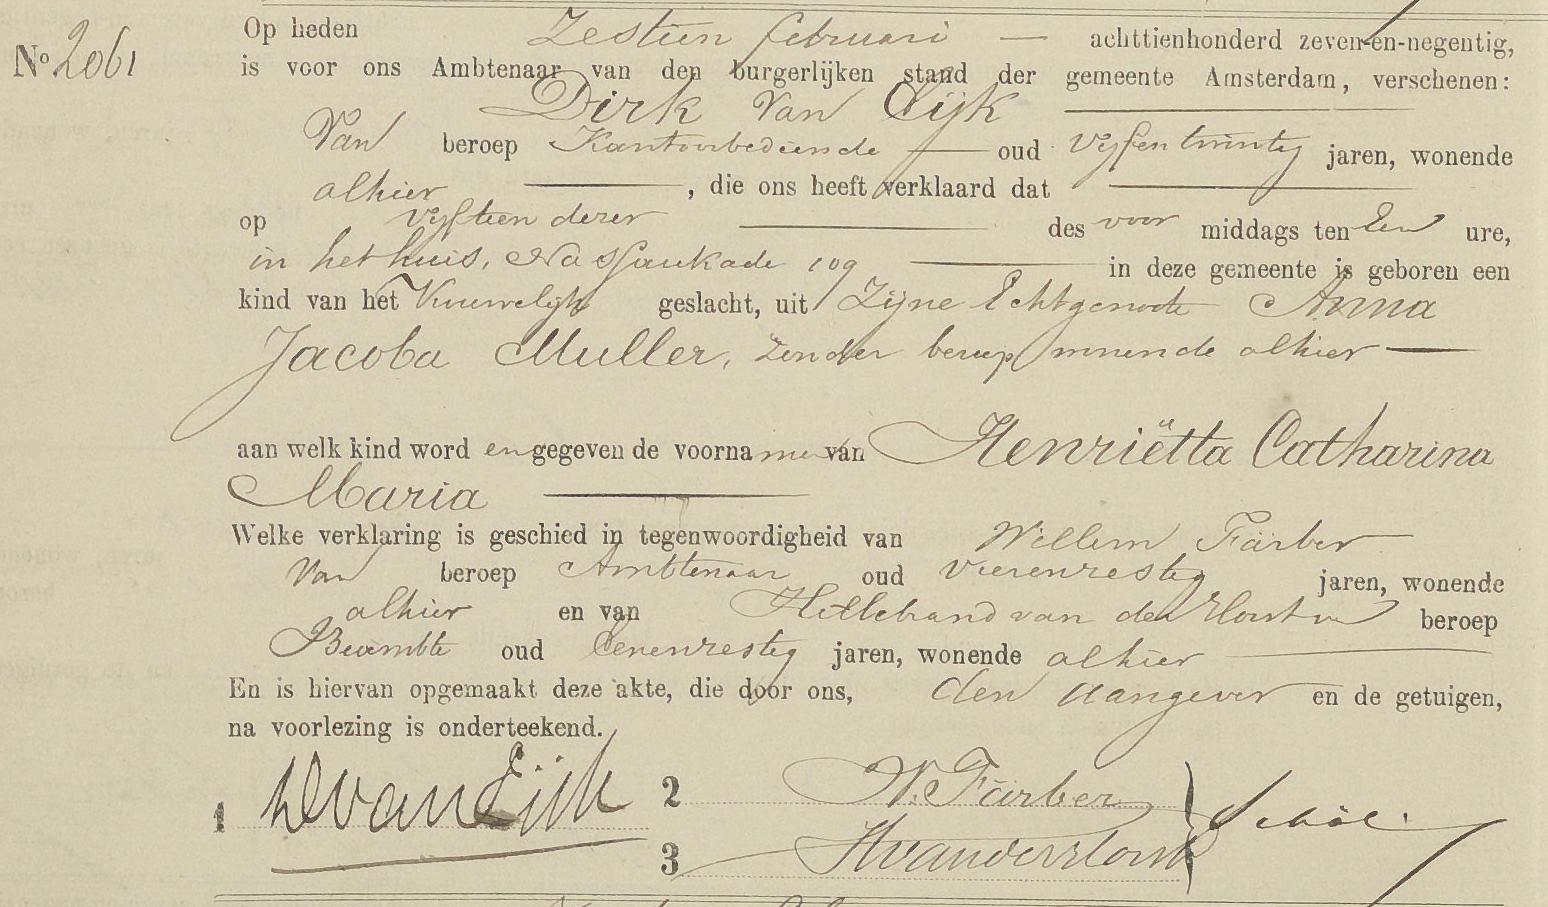 No 2061
Op heden Zestien februari — achttienhonderd zeven-en-negentig,
is voor ons Ambtenaar van den burgerlijken stand der gemeente Amsterdam, verschenen:
Dirk van Eijk
Van beroep Kantoorbediende oud Vijfentwintig jaren, wonende
alhier , die ons heeft verklaard dat
op vijftien dezer des voor middags ten Een ure,
in het huis, Nassaukade 109 in deze gemeente is geboren een
kind van het Vrouwelijk geslacht, uit Zijne Echtgenoote Anna
Jacoba Muller, zonder beroep wonende alhier —
aan welk kind word en gegeven de voornamen van Henriëtta Catharina
Maria
Welke verklaring is geschied in tegenwoordigheid van Willem Färber
Van beroep Ambtenaar oud Vierenzestig jaren, wonende
alhier en van Hillebrand van der Horst van beroep
Beambte oud Eenenzestig jaren, wonende alhier
En is hiervan opgemaakt deze akte, die door ons, den aangever en de getuigen,
na voorlezing is onderteekend.
1 D van Eijk 2 W. Färber
3 H van der Horst